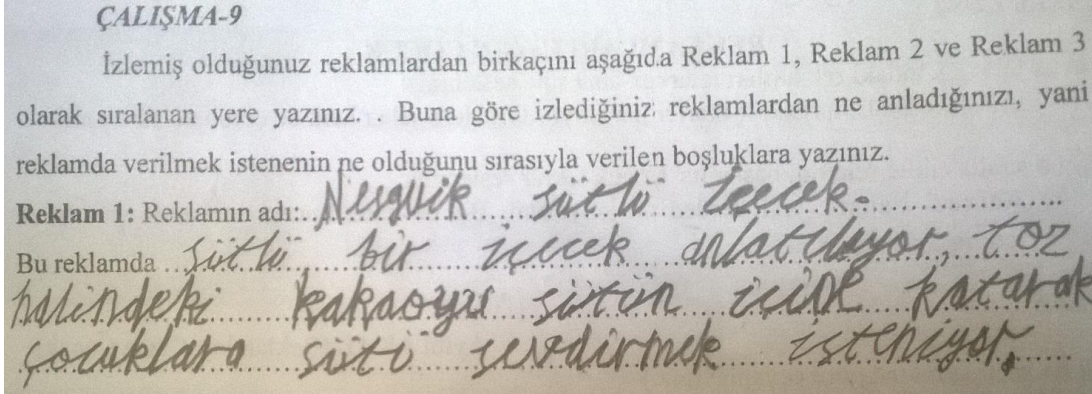 ÇALIŞMA-9
İzlemiş olduğunuz reklamlardan birkaçını aşağıda Reklam 1, Reklam 2 ve Reklam 3
olarak sıralanan yere yazınız. . Buna göre izlediğiniz reklamlardan ne anladığınızı, yani
reklamda verilmek istenenin ne olduğunu sırasıyla verilen boşluklara yazınız.
Reklam 1: Reklamın adı: Nesquik sütlü İçecek.
Bu reklamda sütlü bir içecek anlatılıyor, toz
halindeki kakaoyu sütün içine katarak
çocuklara sütü sevdirmek isteniyor.